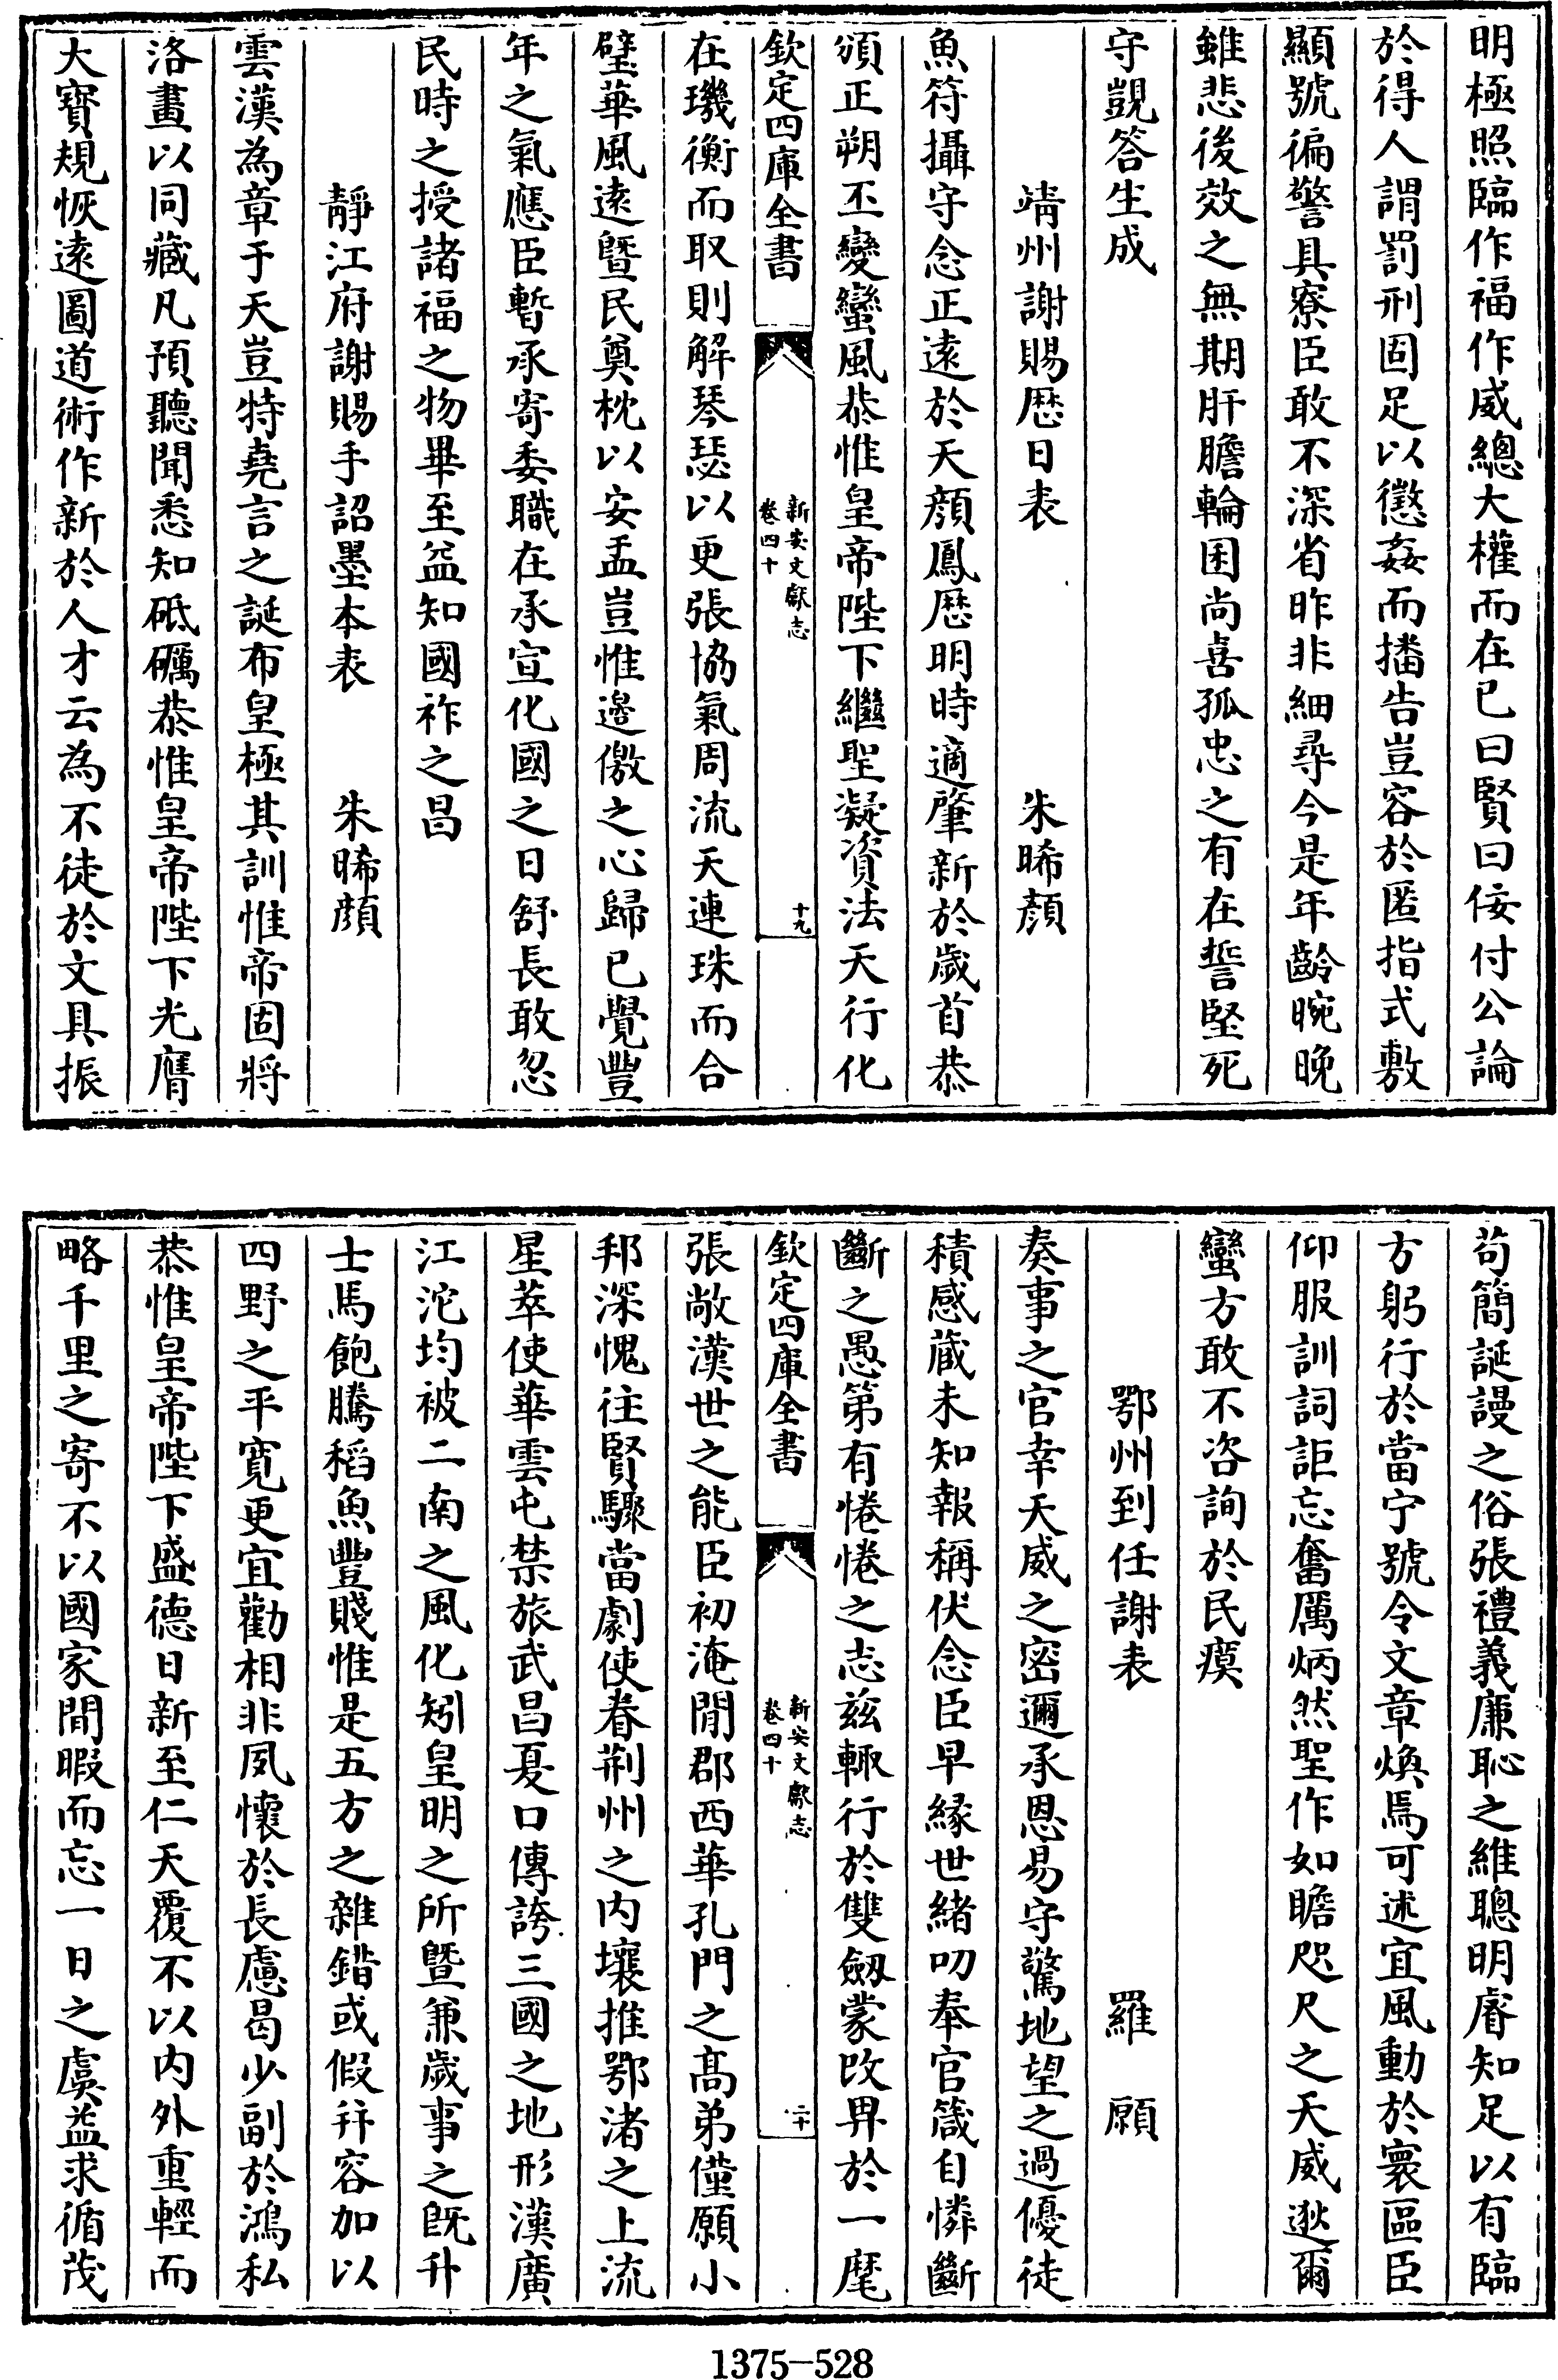 明極照臨作福作威總大權而在已曰賢曰佞付公論
於得人謂罰刑固足以懲姦而播告豈容於匿指式敷
顯號徧警具寮臣敢不深省昨非細尋今是年齡晼晚
雖悲後效之無期肝膽輪囷尚喜孤忠之有在誓堅死
守覬答生成
靖州謝賜歴日表 朱晞顔
魚符攝守念正遠於天顔鳳厯明時適肇新於歲首恭
頒正朔丕變蠻風恭惟皇帝陛下繼聖凝資法天行化
欽定四庫全書 新安文獻志 卷四十 十九
在璣衡而取則解琴瑟以更張協氣周流天連珠而合
璧華風遠暨民奠枕以安盂豈惟邉徼之心歸已覺豐
年之氣應臣暫承寄委職在承宣化國之日舒長敢忽
民時之授諸福之物畢至益知國祚之昌
靜江府謝賜手詔墨本表 朱晞顔
雲漢為章于天豈特堯言之誕布皇極其訓惟帝固將
洛畫以同藏凡預聽聞悉知砥礪恭惟皇帝陛下光膺
大寶規恢遠圖道術作新於人才云為不徒於文具振
苟簡誕謾之俗張禮義廉恥之維聰明睿知足以有臨
方躬行於當宁號令文章煥焉可述宜風動於寰區臣
仰服訓詞詎忘奮厲炳然聖作如瞻咫尺之天威逖爾
蠻方敢不咨詢於民瘼
鄂州到任謝表 羅願
奏事之官幸天威之密邇承恩易守驚地望之過優徒
積感蔵未知報稱伏念臣早縁世緒叨奉官箴自憐斷
斷之愚第有惓惓之志兹輙行於雙劔蒙改畀於一麾
欽定四庫全書 新安文獻志 卷四十 二十
張敞漢世之能臣初淹閒郡西華孔門之髙弟僅願小
邦深愧往賢驟當劇使眷荆州之内壤推鄂渚之上流
星萃使華雲屯禁旅武昌夏口傳誇三國之地形漢廣
江沱均被二南之風化矧皇明之所暨兼歲事之既升
士馬飽騰稻魚豐賤惟是五方之雜錯或假并容加以
四野之平寛更宜勸相非夙懷於長慮曷少副於鴻私
恭惟皇帝陛下盛德日新至仁天覆不以内外重輕而
略千里之寄不以國家閒暇而忘一日之虞益求循茂
1375-528